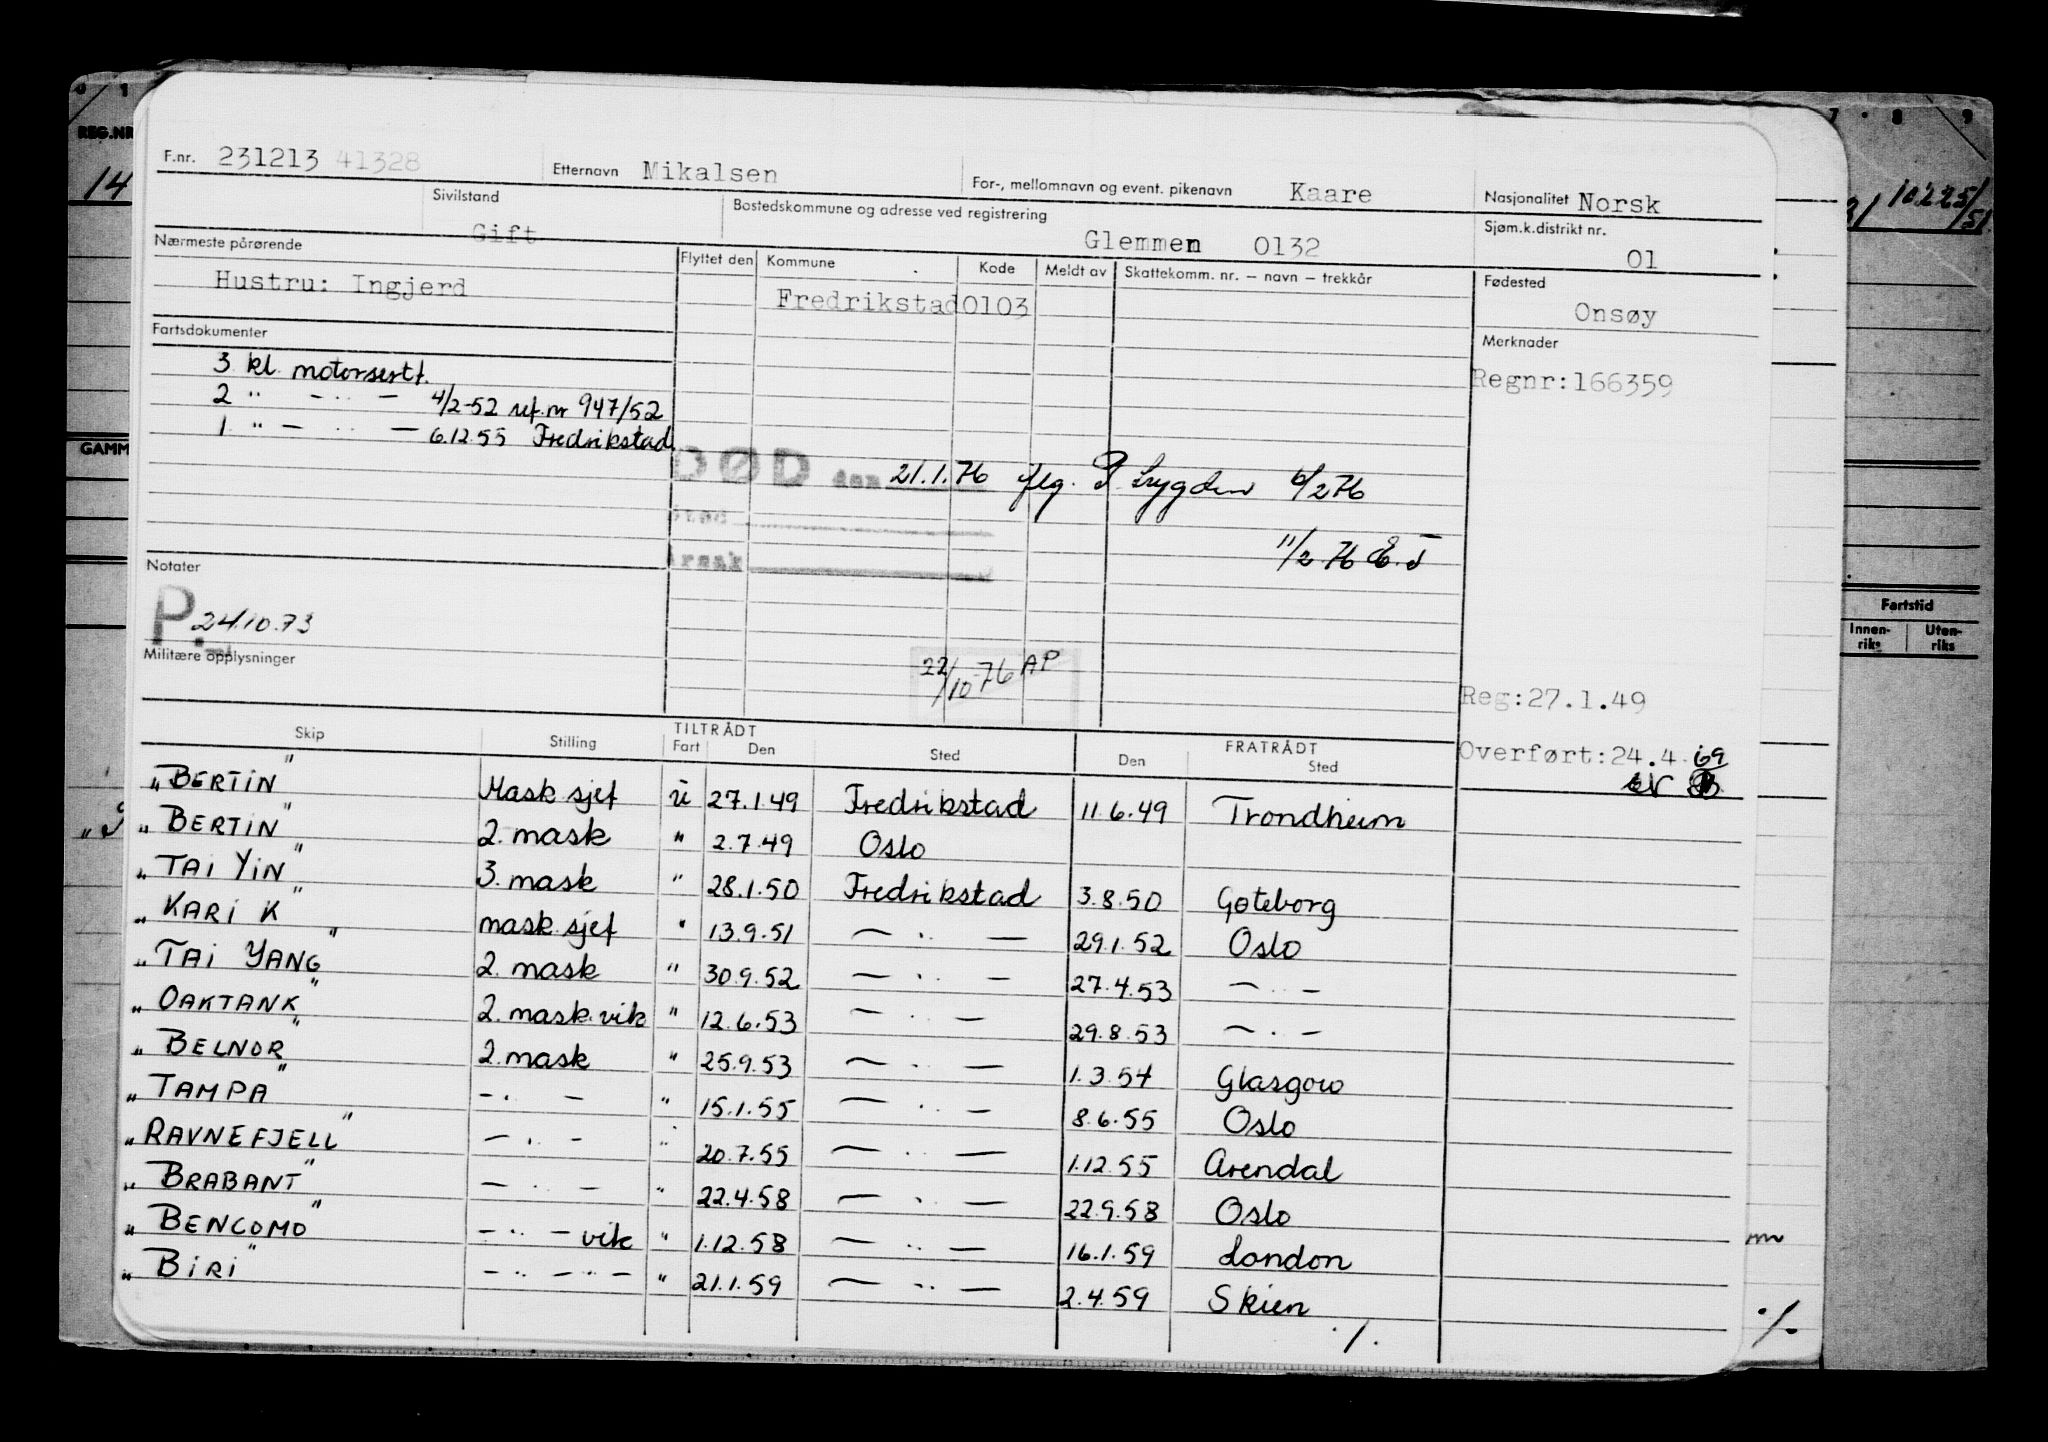 F.nr. 231213 41328 Etternavn Mikalsen For-, mellomnavn og event. pikenavn Kaare Nasjonalitet Norsk
Sivilstand Gift Bostedskommune og adresse ved registrering Glemmen 0132 Sjøm.k.distrikt nr. 01
Nærmeste pårørende Flyttet den Kommune Kode Meldt av Skattekomm. nr. – navn – trekkår Fødested
Hustru: Ingjerd Fredrikstad 0103 Onsøy
Fartsdokumenter Merknader
3 kl. motorsert. Regnr:166359
2 " — " — 4/2-52 ref.nr 947/52
1 " — " — 6.12.55 Fredrikstad
DØD den 21.1.76 flg. 6/2 76
Sted
Årsak 11/2 76
Notater
P. 24.10.73
Militære opplysninger
22/10-76 AP
Reg:27.1.49
Overført:24.4.69
Skip Stilling TILTRÅDT Fart Den Sted FRATRÅDT Den Sted
"BERTIN" Mask sjef u 27.1.49 Fredrikstad 11.6.49 Trondheim
"BERTIN" 2. mask " 2.7.49 Oslo
"TAI YIN" 3. mask " 28.1.50 Fredrikstad 3.8.50 Gøteborg
"KARI K" mask. sjef " 13.9.51 — " — 29.1.52 Oslo
"TAI YANG" 2. mask " 30.9.52 — " — 27.4.53 — " —
"OAKTANK" 2. mask. vik " 12.6.53 — " — 29.8.53 — " —
"BELNOR" 2. mask " 25.9.53 — " — 1.3.54 Glasgow
"TAMPA" — " — " 15.1.55 — " — 8.6.55 Oslo
"RAVNEFJELL" — " — " 20.7.55 — " — 1.12.55 Arendal
"BRABANT" — " — " 22.4.58 — " — 22.9.58 Oslo
"BENCOMO" — " — vik " 1.12.58 — " — 16.1.59 London
"BIRI" — " — " — " 21.1.59 — " — 2.4.59 Skien
./.
REG.NR
14
GAMM
10225/51
Fartstid
Innen-riks Uten-riks
./.